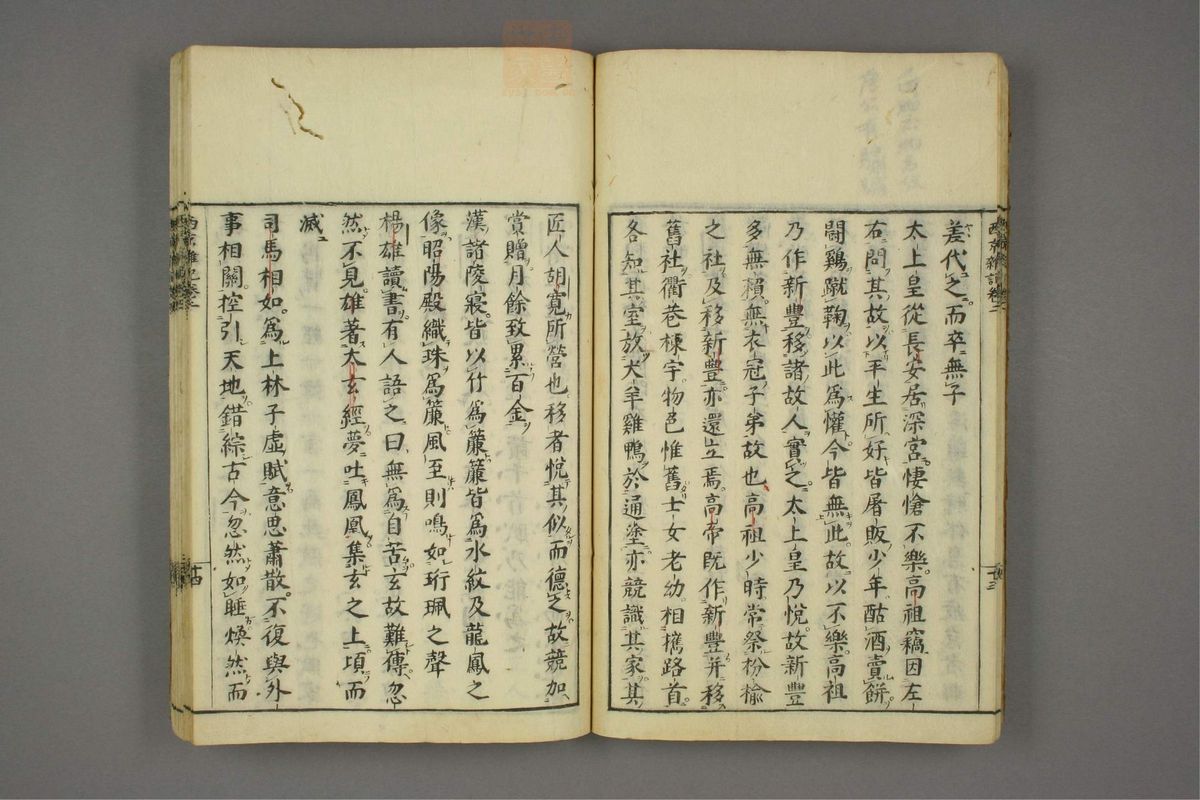 差代之而卒無子
太上皇從長安居深宮悽愴不樂高祖竊因左
右問其故以平生所好皆屠販少年酤酒賣餅
鬪鷄蹴鞠以此爲懽今皆無此故以不樂高祖
乃作新豐移諸故人實之太上皇乃悅故新豐
多無賴無衣冠子弟故也高祖少時常祭枌榆
之社及移新豐亦還立焉高帝既作新豐并移
舊社衢巷棟宇物色惟舊士女老幼相攜路首
各知其室放犬羊雞鴨於通塗亦競識其家其
匠人胡寬所營也移者悅其似而德之故競加
賞贈月餘致累百金
漢諸陵寢皆以竹爲簾簾皆爲水紋及龍鳳之
像昭陽殿織珠爲簾風至則鳴如珩珮之聲
楊雄讀書有人語之曰無爲自苦玄故難傳忽
然不見雄著太玄經夢吐鳳凰集玄之上頃而
滅
司馬相如爲上林子虛賦意思蕭散不復與外
事相關控引天地錯綜古今忽然如睡煥然而
西京雜記卷二
十四